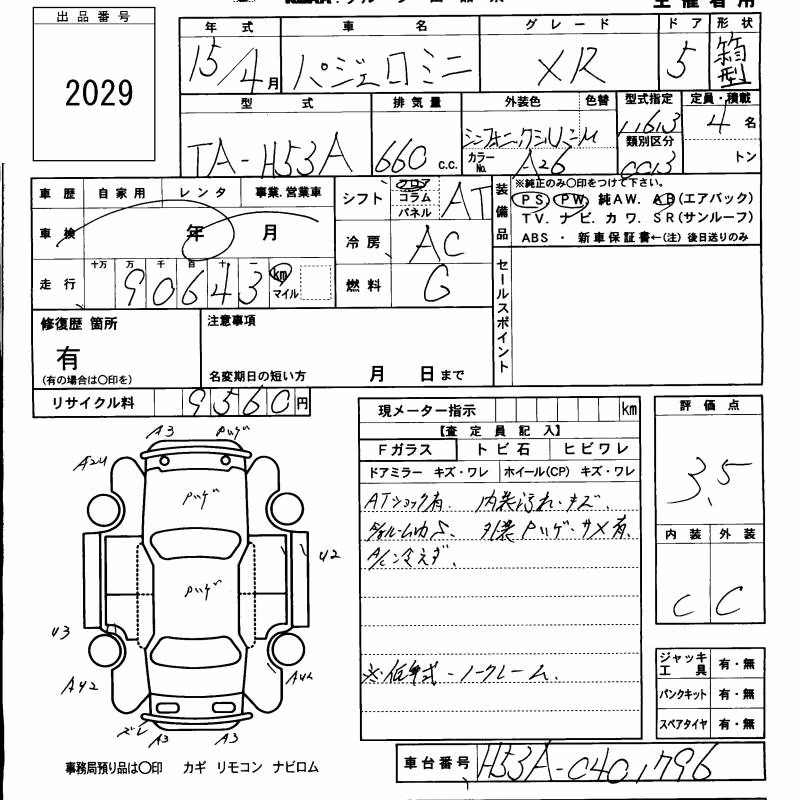 出品番号
2029
主催者用
年式 車名 グレード ドア 形状
15/4月 パジェロミニ XR 5 箱型
型式 排気量 外装色 色替 型式指定 定員・積載
TA-H53A 660 c.c. カラーNo. A26 11613 4名
類別区分
0013 トン
車歴 自家用 レンタ 事業.営業車
シフト フロア コラム パネル AT
車検 年 月
冷房 AC
走行 十万 万 千 百 十 一
90643 km マイル
燃料 G
装備品
※純正のみ〇印をつけて下さい。
PS PW 純AW. AB(エアバック)
TV. ナビ. カワ. SR(サンルーフ)
ABS ・ 新車保証書←(注) 後日送りのみ
セールスポイント
修復歴 箇所
有
(有の場合は〇印を)
注意事項
名変期日の短い方 月 日まで
リサイクル料 9560円
現メーター指示 km
【査定員記入】
Fガラス トビ石 ヒビワレ
ドアミラー キズ・ワレ ホイール(CP) キズ・ワレ
ATショック有. 内装汚れ・キズ.
外装Pハゲ・サメ有.
A/C冷えず.
※低年式・ノークレーム.
評価点
3.5
内装 外装
C C
A3 Pハゲ
A24
Pハゲ
U2
Pハゲ
U3
A42
A42
ズレ A3 A3
ジャッキ工具 有・無
パンクキット 有・無
スペアタイヤ 有・無
事務局預り品は〇印 カギ リモコン ナビロム
車台番号 H53A-0401796